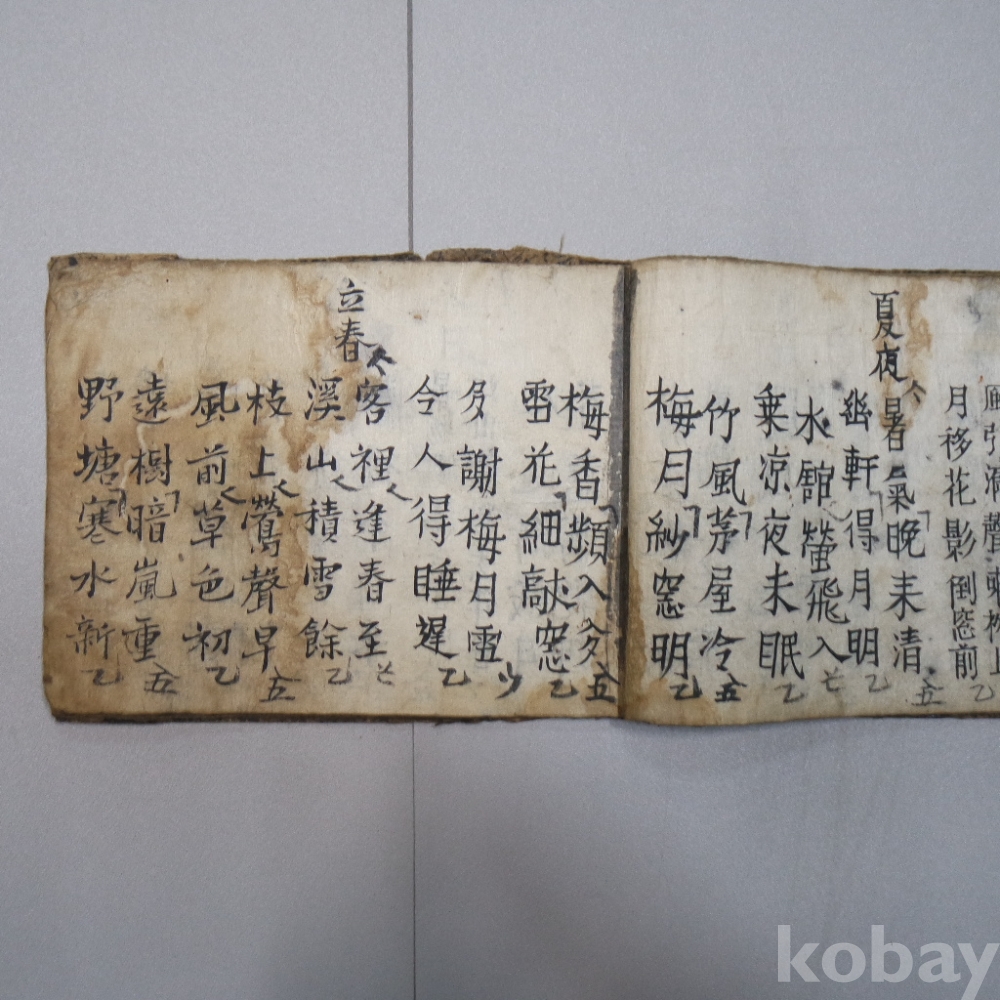 月移花影倒窓前
夏夜
暑氣晚来清五
幽軒得月明乙
水舘螢飛入
乗凉夜未眠乙
竹風茅屋冷五
梅月紗窓明乙
梅香頻入夕五
雪花細敲窓乙
多謝梅月雪
令人得睡遲乙
立春
客裡逢春至
溪山積雪餘乙
枝上鶯聲早五
風前草色初乙
遠樹暗嵐重五
野塘寒水新乙
kobay